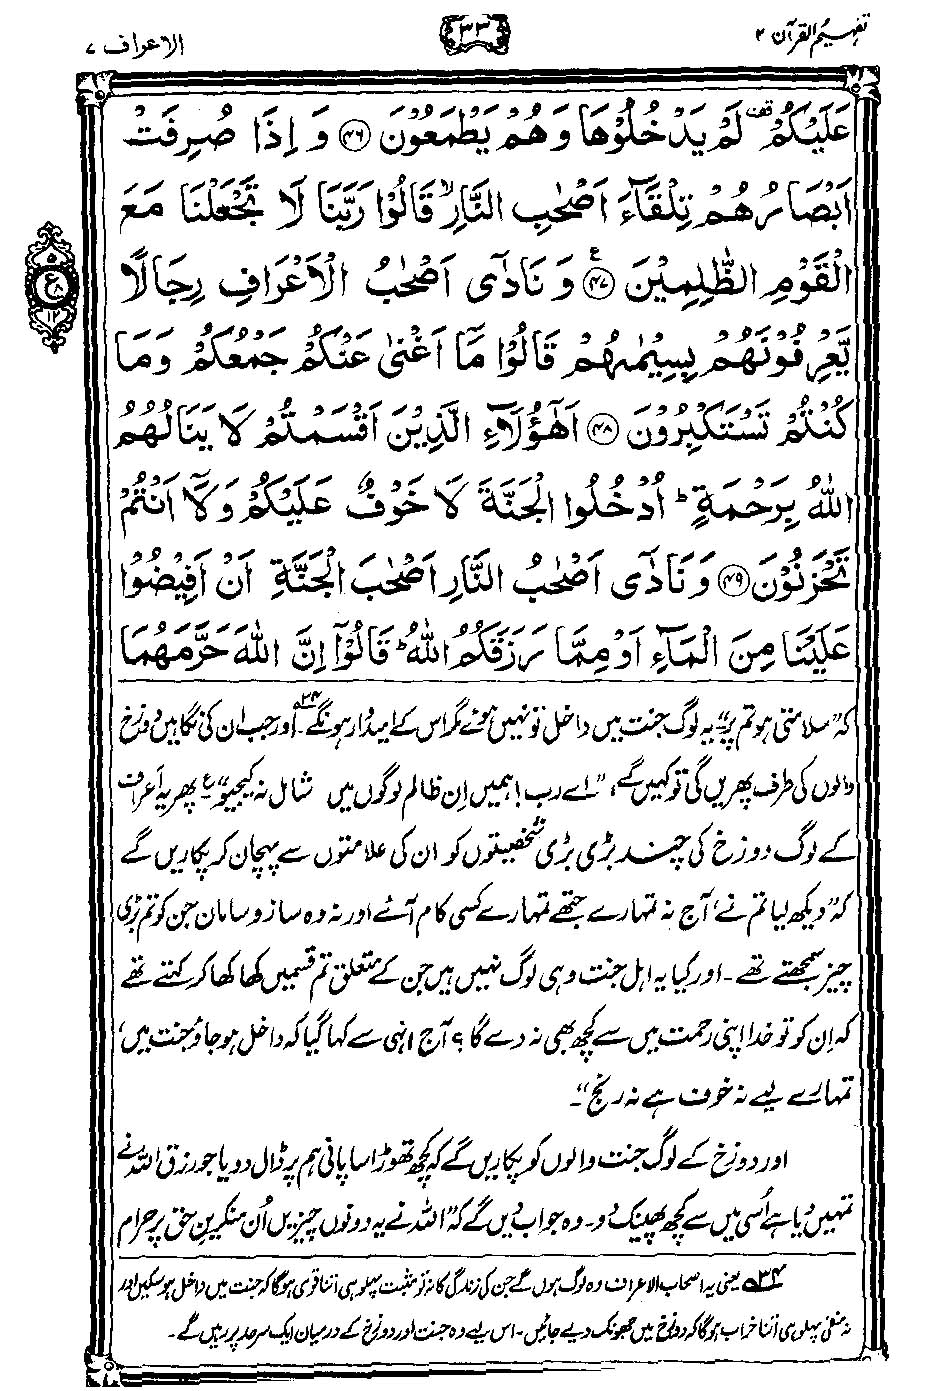 تفہیم القرآن ۲
۳۳
الاعراف ۷
عَلَيْكُمْ قف لَمْ يَدْخُلُوْهَا وَهُمْ يَطْمَعُوْنَ ﴿۴۶﴾ وَ اِذَا صُرِفَتْ
اَبْصَارُهُمْ تِلْقَآءَ اَصْحٰبِ النَّارِ ۙ قَالُوْا رَبَّنَا لَا تَجْعَلْنَا مَعَ
الْقَوْمِ الظّٰلِمِيْنَ ﴿۴۷﴾ ع وَ نَادٰٓى اَصْحٰبُ الْاَعْرَافِ رِجَالًا
ع ۵ ۸ ۱۲
يَّعْرِفُوْنَهُمْ بِسِيْمٰىهُمْ قَالُوْا مَآ اَغْنٰى عَنْكُمْ جَمْعُكُمْ وَمَا
كُنْتُمْ تَسْتَكْبِرُوْنَ ﴿۴۸﴾ اَهٰٓؤُلَآءِ الَّذِيْنَ اَقْسَمْتُمْ لَا يَنَالُهُمُ
اللّٰهُ بِرَحْمَةٍ ؕ اُدْخُلُوا الْجَنَّةَ لَا خَوْفٌ عَلَيْكُمْ وَلَآ اَنْتُمْ
تَحْزَنُوْنَ ﴿۴۹﴾ وَ نَادٰٓى اَصْحٰبُ النَّارِ اَصْحٰبَ الْجَنَّةِ اَنْ اَفِيْضُوْا
عَلَيْنَا مِنَ الْمَآءِ اَوْ مِمَّا رَزَقَكُمُ اللّٰهُ ؕ قَالُوْٓا اِنَّ اللّٰهَ حَرَّمَهُمَا
کہ ”سلامتی ہو تم پر“ یہ لوگ جنت میں داخل تو نہیں ہوئے مگر اس کے امیدوار ہونگے۔ ۳۴ اور جب ان کی نگاہیں دوزخ
والوں کی طرف پھریں گی تو کہیں گے، ”اے رب! ہمیں اِن ظالم لوگوں میں شامل نہ کیجیو“ ع پھر یہ اَعراف
کے لوگ دوزخ کی چند بڑی بڑی شخصیتوں کو ان کی علامتوں سے پہچان کر پکاریں گے
کہ ”دیکھ لیا تم نے، آج نہ تمہارے جتھے تمہارے کسی کام آئے اور نہ وہ ساز و سامان جن کو تم بڑی
چیز سمجھتے تھے۔ اور کیا یہ اہل جنت وہی لوگ نہیں ہیں جن کے متعلق تم قسمیں کھا کھا کر کہتے تھے
کہ اِن کو تو خدا اپنی رحمت میں سے کچھ بھی نہ دے گا؟ آج انہی سے کہا گیا کہ داخل ہو جاؤ جنت میں،
تمہارے لیے نہ خوف ہے نہ رنج“۔
اور دوزخ کے لوگ جنت والوں کو پکاریں گے کہ کچھ تھوڑا سا پانی ہم پر ڈال دو یا جو رزق اللہ نے
تمہیں دیا ہے اُسی میں سے کچھ پھینک دو۔ وہ جواب دیں گے کہ ”اللہ نے یہ دونوں چیزیں اُن منکرینِ حق پر حرام
۳۴ یعنی یہ اصحاب الاعراف وہ لوگ ہوں گے جن کی زندگی کا نہ تو مثبت پہلو ہی اتنا قوی ہوگا کہ جنت میں داخل ہو سکیں اور
نہ منفی پہلو ہی اتنا خراب ہوگا کہ دوزخ میں جھونک دیے جائیں۔ اس لیے وہ جنت اور دوزخ کے درمیان ایک سرحد پر رہیں گے۔